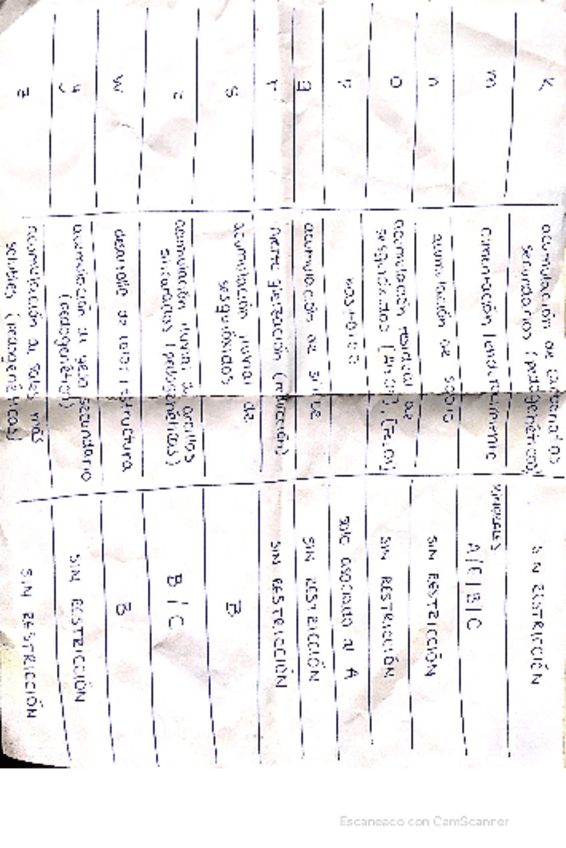 K
acumulación de carbonatos
secundarios (pedogenéticos)
SIN RESTRICCIÓN
m
Cimentación / endurecimiento
MINERALES
A/E/B/C
n
acumulación de sodio
SIN RESTRICCIÓN
o
acumulación residual de
sesquióxidos
SIN RESTRICCIÓN
P
solo asociado al A
q
acumulación de sílice
SIN RESTRICCIÓN
r
fuerte gleización (reducción)
SIN RESTRICCIÓN
s
acumulación iluvial de
sesquióxidos
B
t
acumulación iluvial de arcillas
silicatadas (pedogenéticas)
B/C
w
desarrollo de color / estructura
B
y
acumulación de yeso secundario
(pedogenético)
SIN RESTRICCIÓN
z
acumulación de sales más
solubles (pedogenéticas)
SIN RESTRICCIÓN
Escaneado con CamScanner